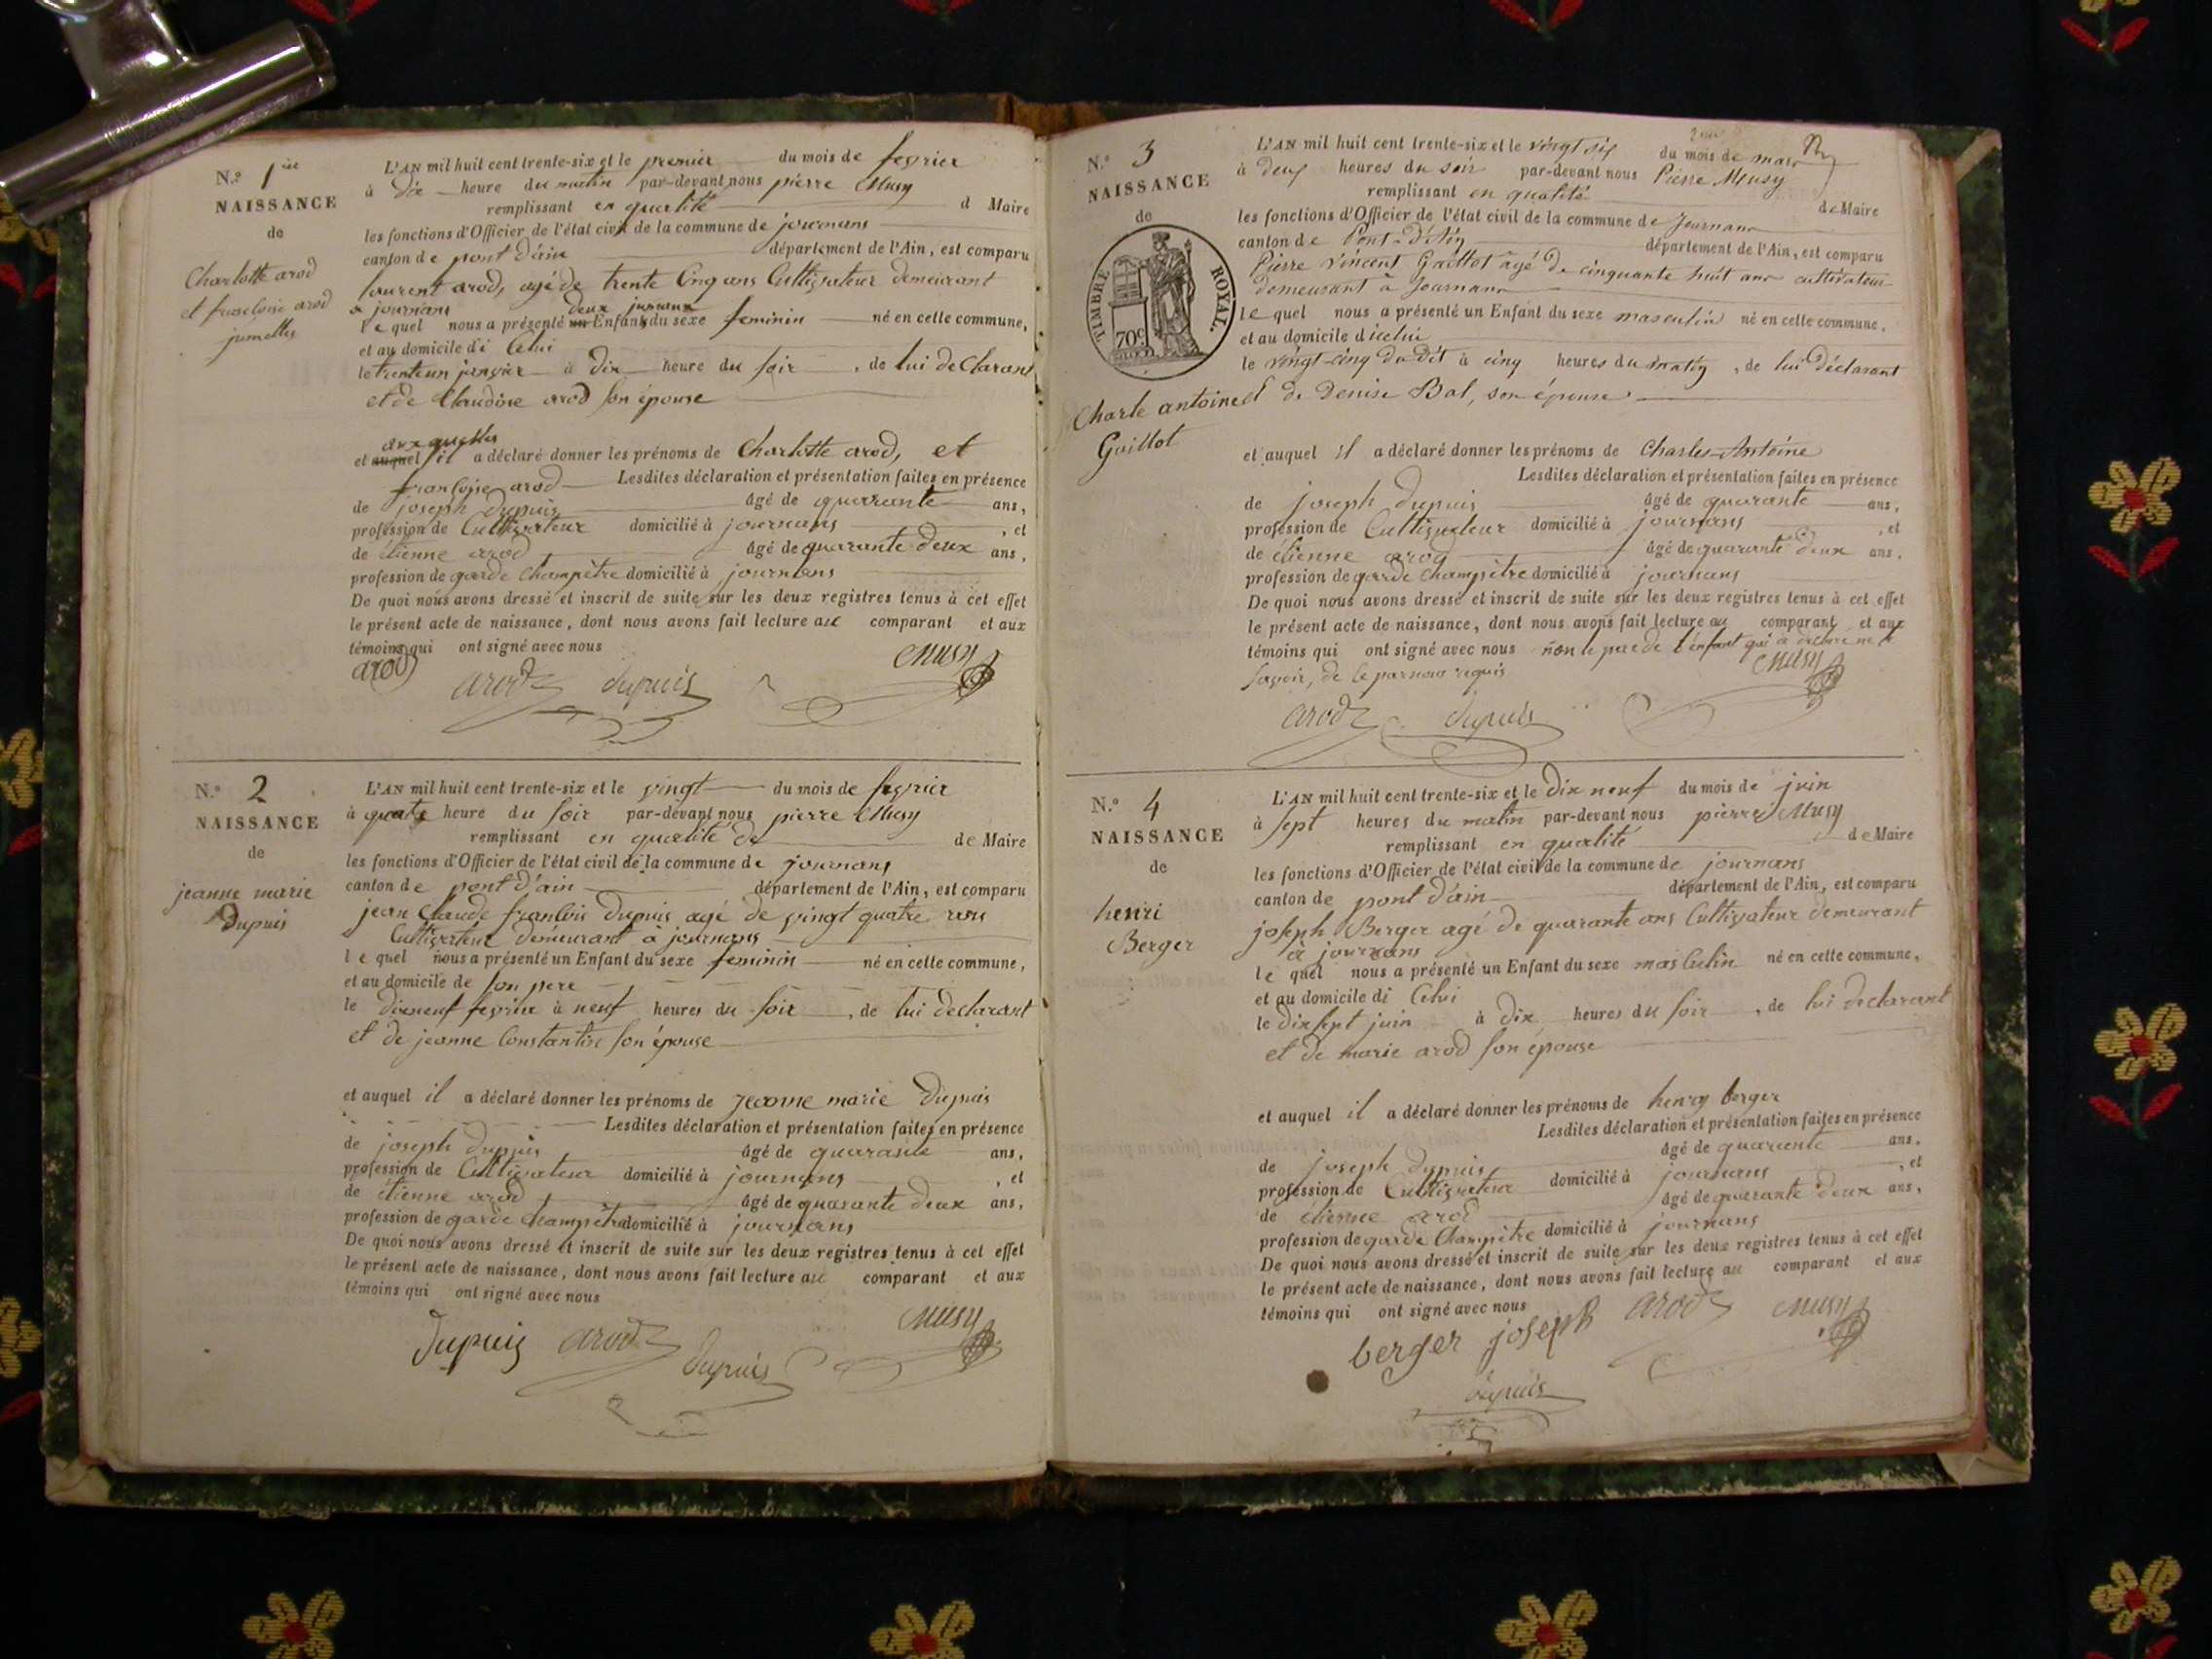 N.º 1ère
NAISSANCE
de
Charlotte arod
et francoise arod
jumelles
L'AN mil huit cent trente-six et le premier du mois de fevrier
à dix heure du matin par-devant nous pierre Musy
remplissant en qualité d Maire
les fonctions d'Officier de l'état civil de la commune de journans
canton de pont d'ain département de l'Ain, est comparu
laurent arod, agé de trente Cinq ans Cultivateur demeurant
a journans deux jumeaux
le quel nous a présenté un Enfants du sexe feminin né en cette commune,
et au domicile di Celui
le trente un janvier à dix heure du soir, de lui declarant
et de Claudine arod son épouse
aux quelles
et auquel il a déclaré donner les prénoms de Charlotte arod, et
francoise arod Lesdites déclaration et présentation faites en présence
de joseph dupuis âgé de quarante ans,
profession de Cultivateur domicilié à journans, et
de étienne arod âgé de quarante deux ans,
profession de garde Champêtre domicilié à journans
De quoi nous avons dressé et inscrit de suite sur les deux registres tenus à cet effet
le présent acte de naissance, dont nous avons fait lecture au comparant et aux
témoins qui ont signé avec nous
arod arod dupuis Musy
N.º 2
NAISSANCE
de
jeanne marie
Dupuis
L'AN mil huit cent trente-six et le vingt du mois de fevrier
à quatre heure du soir par-devant nous pierre Musy
remplissant en qualité de de Maire
les fonctions d'Officier de l'état civil de la commune de journans
canton de pont d'ain département de l'Ain, est comparu
jean Claude francois Dupuis agé de vingt quatre ans
Cultivateur demeurant à journans
le quel nous a présenté un Enfant du sexe feminin né en cette commune,
et au domicile de son pere
le dixneuf fevrier à neuf heures du soir, de lui declarant
et de jeanne Constantin son épouse
et auquel il a déclaré donner les prénoms de jeanne marie Dupuis
Lesdites déclaration et présentation faites en présence
de joseph dupuis âgé de quarante ans,
profession de Cultivateur domicilié à journans, et
de étienne arod âgé de quarante deux ans,
profession de garde Champêtre domicilié à journans
De quoi nous avons dressé et inscrit de suite sur les deux registres tenus à cet effet
le présent acte de naissance, dont nous avons fait lecture au comparant et aux
témoins qui ont signé avec nous
Dupuis arod dupuis Musy
N.º 3
NAISSANCE
de
TIMBRE ROYAL.
70c
Charle antoine
Guillot
L'AN mil huit cent trente-six et le vingt six du mois de mars
à deux heures du soir par-devant nous Pierre Musy
remplissant en qualité de Maire
les fonctions d'Officier de l'état civil de la commune de Journans
canton de Pont-d'Ain département de l'Ain, est comparu
Pierre Vincent Guillot âgé de cinquante huit ans cultivateur
demeurant à Journans
le quel nous a présenté un Enfant du sexe masculin né en cette commune,
et au domicile d'icelui
le vingt-cinq du dit à cinq heures du matin, de lui déclarant
et de Denise Bal, son épouse
et auquel il a déclaré donner les prénoms de Charles-Antoine
Lesdites déclaration et présentation faites en présence
de joseph dupuis âgé de quarante ans,
profession de Cultivateur domicilié à journans, et
de étienne arod âgé de quarante deux ans,
profession de garde Champêtre domicilié à journans
De quoi nous avons dressé et inscrit de suite sur les deux registres tenus à cet effet
le présent acte de naissance, dont nous avons fait lecture au comparant et aux
témoins qui ont signé avec nous non le per de l'enfant qui a declaré ne le
savoir, de ce par nous requis
Musy
arod dupuis
N.º 4
NAISSANCE
de
henri
Berger
L'AN mil huit cent trente-six et le dix neuf du mois de juin
à sept heures du matin par-devant nous pierre Musy
remplissant en qualité de Maire
les fonctions d'Officier de l'état civil de la commune de journans
canton de pont d'ain département de l'Ain, est comparu
joseph Berger agé de quarante ans Cultivateur demeurant
à journans
le quel nous a présenté un Enfant du sexe masculin né en cette commune,
et au domicile di Celui
le dix sept juin à dix heures du soir, de lui declarant
et de marie arod son épouse
et auquel il a déclaré donner les prénoms de henry berger
Lesdites déclaration et présentation faites en présence
de joseph dupuis âgé de quarante ans,
profession de Cultivateur domicilié à journans, et
de étienne arod âgé de quarante deux ans,
profession de garde Champêtre domicilié à journans
De quoi nous avons dressé et inscrit de suite sur les deux registres tenus à cet effet
le présent acte de naissance, dont nous avons fait lecture au comparant et aux
témoins qui ont signé avec nous
berger joseph arod Musy
dupuis